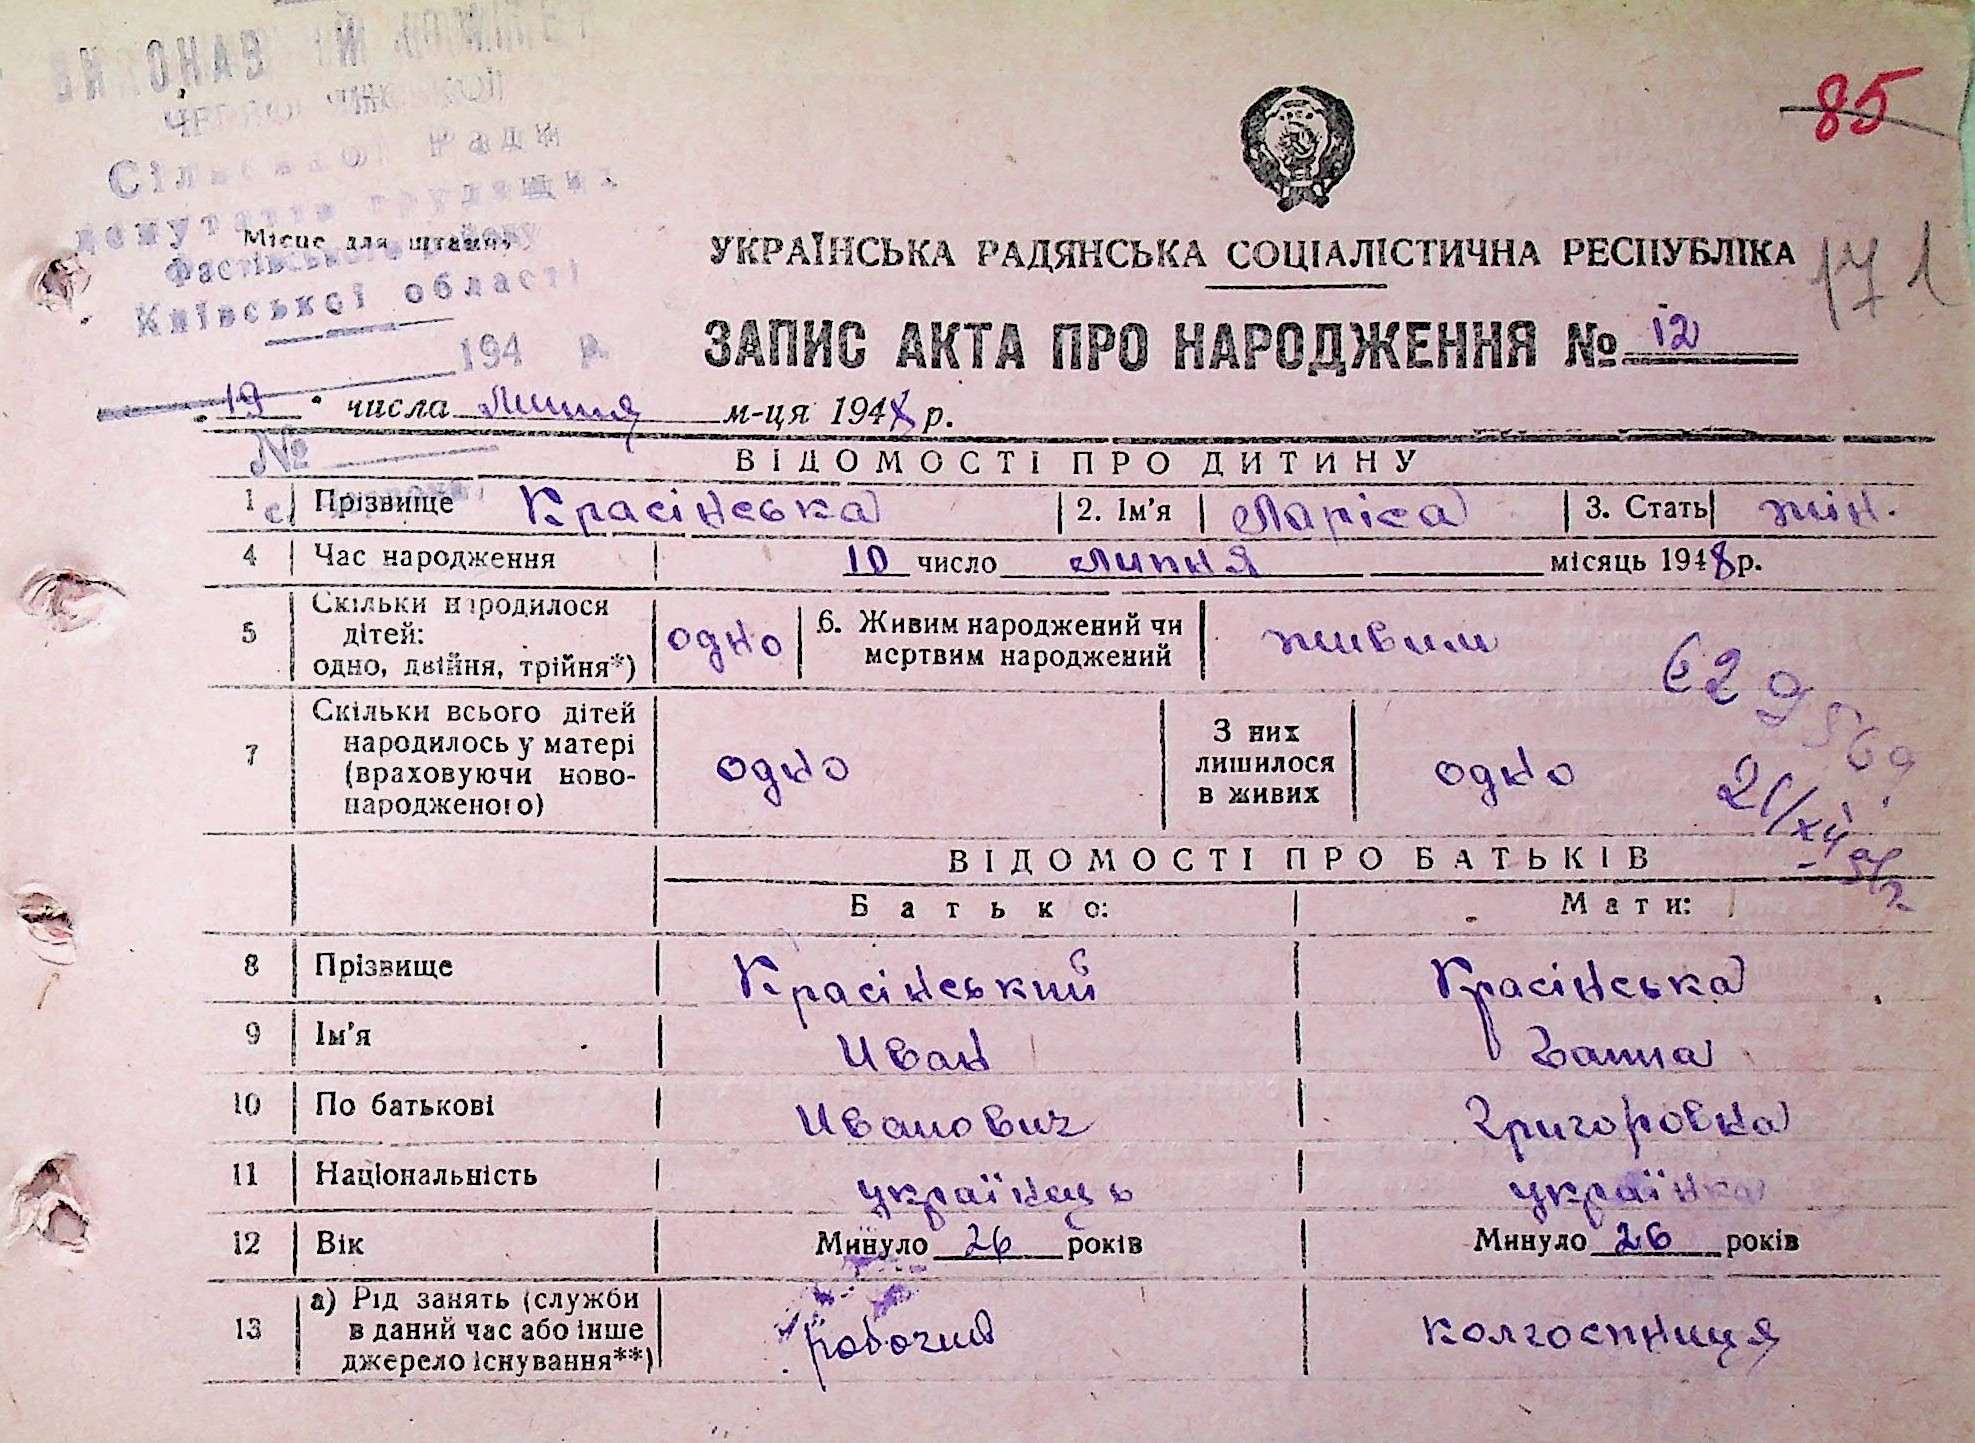 ВИКОНАВЧИЙ КОМІТЕТ
Сільської Ради
депутатів трудящих
Фастівського району
Київської області
194 р.
№
Місце для штампу
85
171
УКРАЇНСЬКА РАДЯНСЬКА СОЦІАЛІСТИЧНА РЕСПУБЛІКА
ЗАПИС АКТА ПРО НАРОДЖЕННЯ № 12
19 числа липня м-ця 1948 р.
ВІДОМОСТІ ПРО ДИТИНУ
1 Прізвище Красінська 2. Ім'я Ларіса 3. Стать жін.
4 Час народження 10 число липня місяць 1948 р.
5 Скільки народилося
дітей:
одно, двійня, трійня*) одно 6. Живим народжений чи
мертвим народжений живим
7 Скільки всього дітей
народилось у матері
(враховуючи ново-
народженого) одно З них
лишилося
в живих одно
ВІДОМОСТІ ПРО БАТЬКІВ
Батько: Мати:
8 Прізвище Красінський Красінська
9 Ім'я Иван Ганна
10 По батькові Иванович Григоровна
11 Національність українець українка
12 Вік Минуло 26 років Минуло 26 років
13 а) Рід занять (служби
в даний час або інше
джерело існування**) робочий колгоспниця